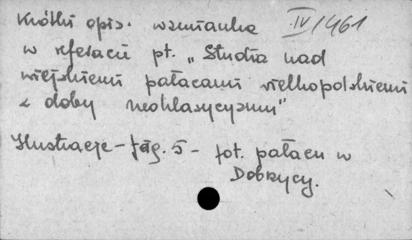 Krótki opis. wzmianka IV/1961
w referacie pt. „Studia nad
wiejskiemi pałacami wielkopolskiemi
z doby neoklasycyzmu"
Ilustracje - fig. 5 - fot. pałacu w
Dobrzycy.